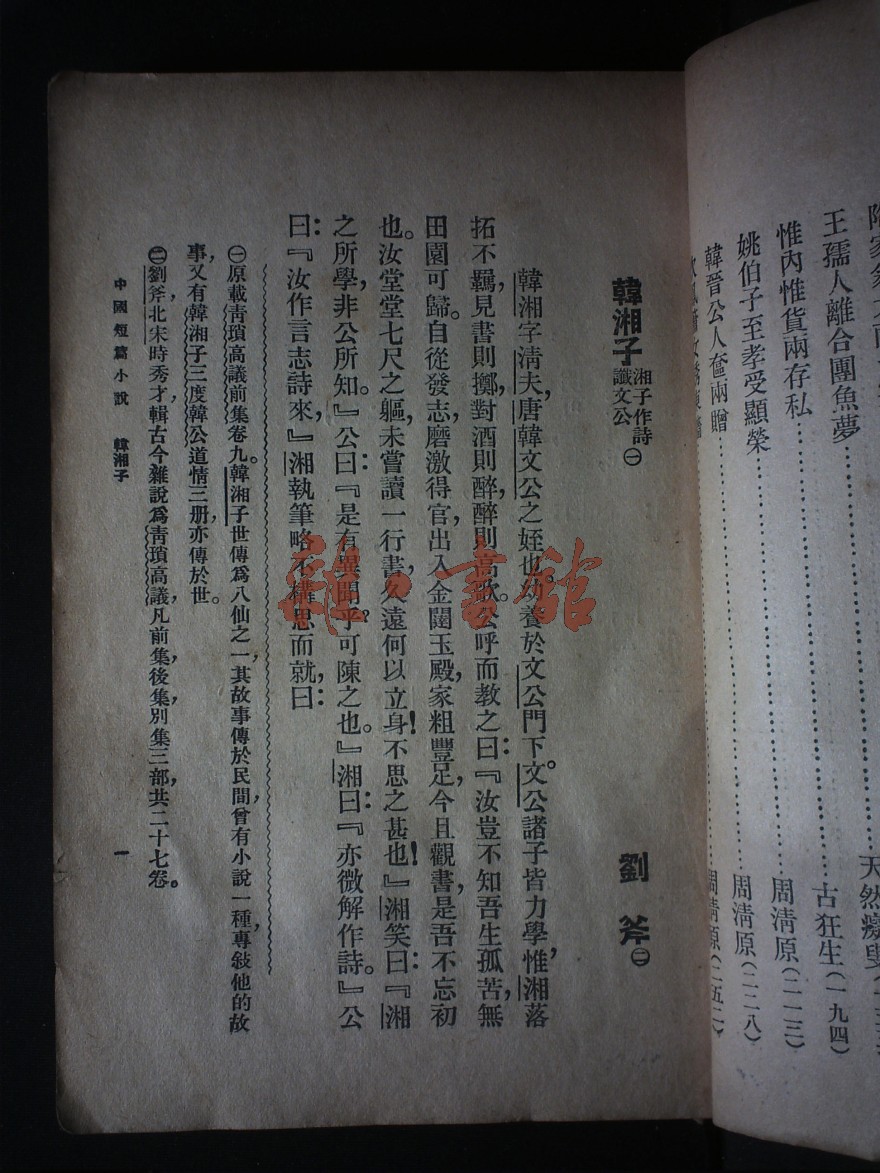 王孺人離合團魚夢……古狂生(一九四)
惟內惟貨兩存私……周清原(二一三)
姚伯子至孝受顯榮……周清原(二二八)
韓晉公人奩兩贈……周清原(二五二)
韓湘子 湘子作詩讖文公㊀
劉斧㊁
韓湘字清夫,唐韓文公之姪也。幼養於文公門下。文公諸子皆力學,惟湘落
拓不羈,見書則擲,對酒則醉,醉則高歌。公呼而教之曰:『汝豈不知吾生孤苦,無
田園可歸。自從發志磨激得官,出入金闥玉殿,家粗豐足,今且觀書,是吾不忘初
也。汝堂堂七尺之軀,未嘗讀一行書,久遠何以立身!不思之甚也!』湘笑曰:『湘
之所學,非公所知。』公曰:『是有異聞乎?可陳之也。』湘曰:『亦微解作詩。』公
曰:『汝作言志詩來,』湘執筆略不構思而就,曰:
㊀原載靑瑣高議前集卷九。韓湘子世傳爲八仙之一,其故事傳於民間,曾有小說一種,專敍他的故
事,又有韓湘子三度韓公道情三册,亦傳於世。
㊁劉斧,北宋時秀才,輯古今雜說爲靑瑣高議,凡前集,後集,別集三部,共二十七卷。
中國短篇小說 韓湘子 一
雜·書館